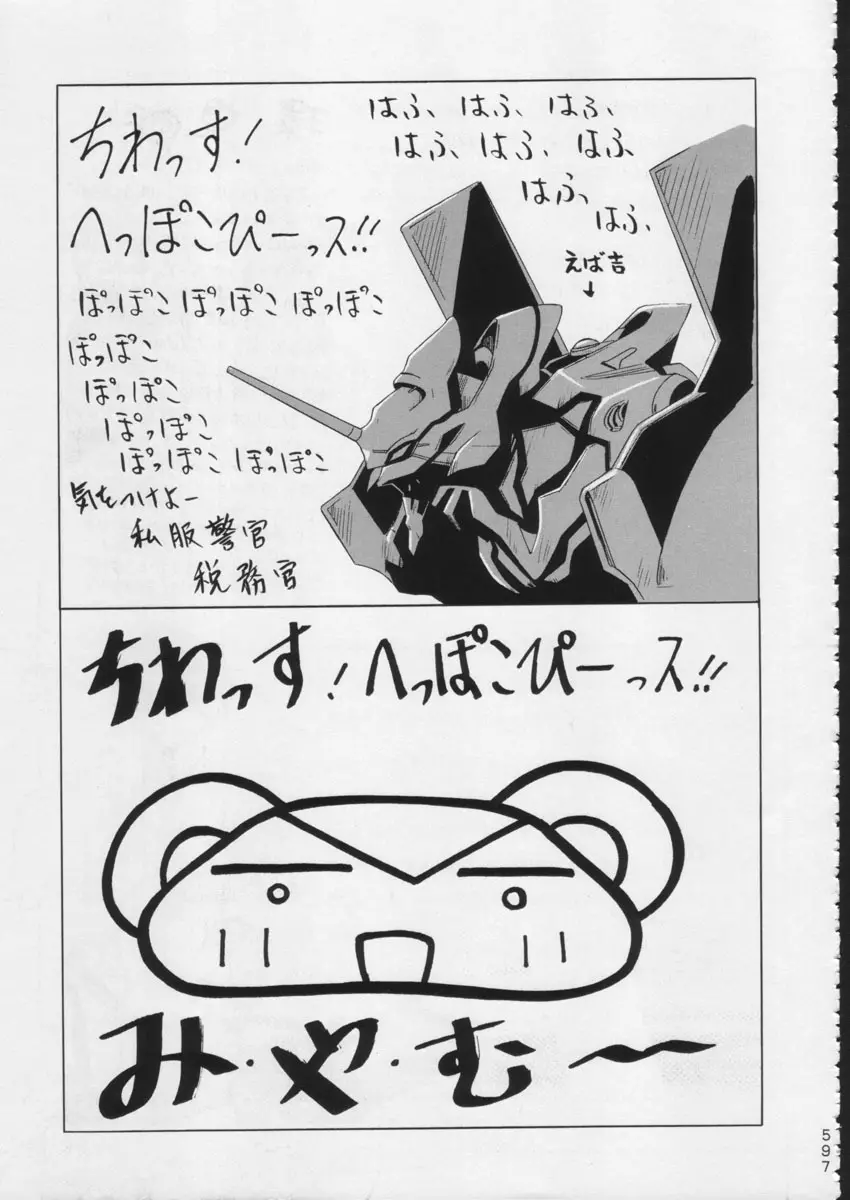 ちわっす!
へっぽこぴーっス!!
ぽっぽこ ぽっぽこ ぽっぽこ
ぽっぽこ
ぽっぽこ
ぽっぽこ
ぽっぽこ ぽっぽこ
気をつけよー
私服警官
税務官
はふ、はふ、はふ、
はふ、はふ、はふ
はふ、
はふ、
えば吉
↓
ちわっす!へっぽこぴーっス!!
み・や・む〜
597